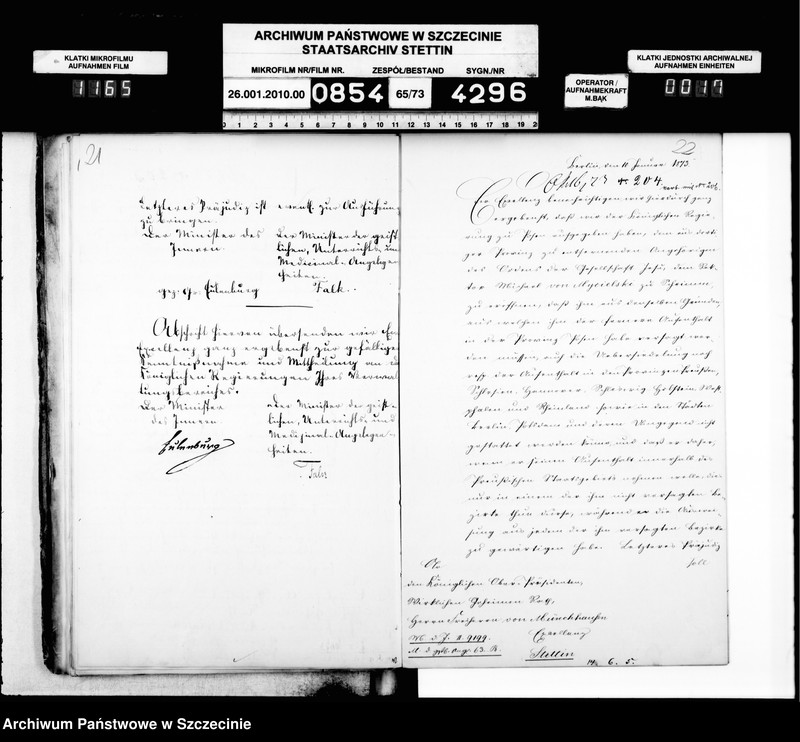 ARCHIWUM PAŃSTWOWE W SZCZECINIE
STAATSARCHIV STETTIN
MIKROFILM NR/FILM NR. ZESPÓŁ/BESTAND SYGN./NR
26.001.2010.00 0854 65/73 4296
0 1 2 3 4 5 6 7 8 9 10 11 12 13 14 15 16 17 18 19 2
KLATKI MIKROFILMU
AUFNAHMEN FILM
1165
OPERATOR /
AUFNAHMEKRAFT
M.BĄK
KLATKI JEDNOSTKI ARCHIWALNEJ
AUFNAHMEN EINHEITEN
0017
21
Letzteres Präjudiz ist event. zur Ausführung
zu bringen.
Der Minister des
Innern.
gez. Gr. Eulenburg
Der Minister der geist-
lichen, Unterrichts- und
Medicinal-Angelegen-
heiten.
Falk.
Abschrift hiervon übersenden wir Eu
Excellenz ganz ergebenst zur gefälligen
Kenntnißnahme und Mittheilung an die
Königlichen Regierungen Ihres Verwal-
tungsbereiches.
Der Minister
des Innern
Eulenburg
Der Minister der geist-
lichen, Unterrichts- und
Medizinal-Angelegen-
heiten.
Falk
22
Berlin, den 11 Januar 1873
204
Eu Excellenz benachrichtigen wir hierdurch ganz
ergebenst, daß wir der Königlichen Regie-
rung zu Posen aufgegeben haben, dem aus dorti-
ger Provinz zu entfernenden Angehörigen
des Ordens der Gesellschaft Jesu, dem Pa-
ter Michael von Mycielski zu Schrimm,
zu eröffnen, daß ihm aus denselben Gründen,
aus welchen ihm der fernere Aufenthalt
in der Provinz Posen habe versagt wer-
den müssen, auch die Uebersiedelung nach
resp. der Aufenthalt in den Provinzen Preußen,
Schlesien, Hannover, Schleswig Holstein, West-
phalen und Rheinland sowie in den Städten
Berlin, Potsdam und deren Umgegend nicht
gestattet werden könne, und daß er daher,
wenn er seinen Aufenthalt innerhalb des
Preußischen Staatsgebiets nehmen wolle, dies
nur in einem der ihm nicht versagten Be-
zirke thun dürfe, während er die Auswei-
sung aus jedem der ihm versagten Bezirke
zu gewärtigen habe. Letzteres Präjudiz
soll
An
den Königlichen Ober-Präsidenten,
Wirklichen Geheimen Rath,
Herrn Freiherrn von Münchhausen
Excellenz
Stettin
M. d. J. II. 9199.
6. 5.
Archiwum Państwowe w Szczecinie